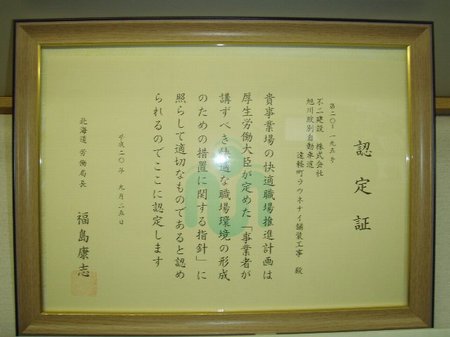 認定証
第二〇－一九五号
不二建設 株式会社
旭川紋別自動車道
遠軽町ラウネナイ舗装工事 殿
貴事業場の快適職場推進計画は
厚生労働大臣が定めた「事業者が
講ずべき快適な職場環境の形成
のための措置に関する指針」に
照らして適切なものであると認め
られるのでここに認定します
平成二〇年 九月二五日
北海道労働局長 福島康志